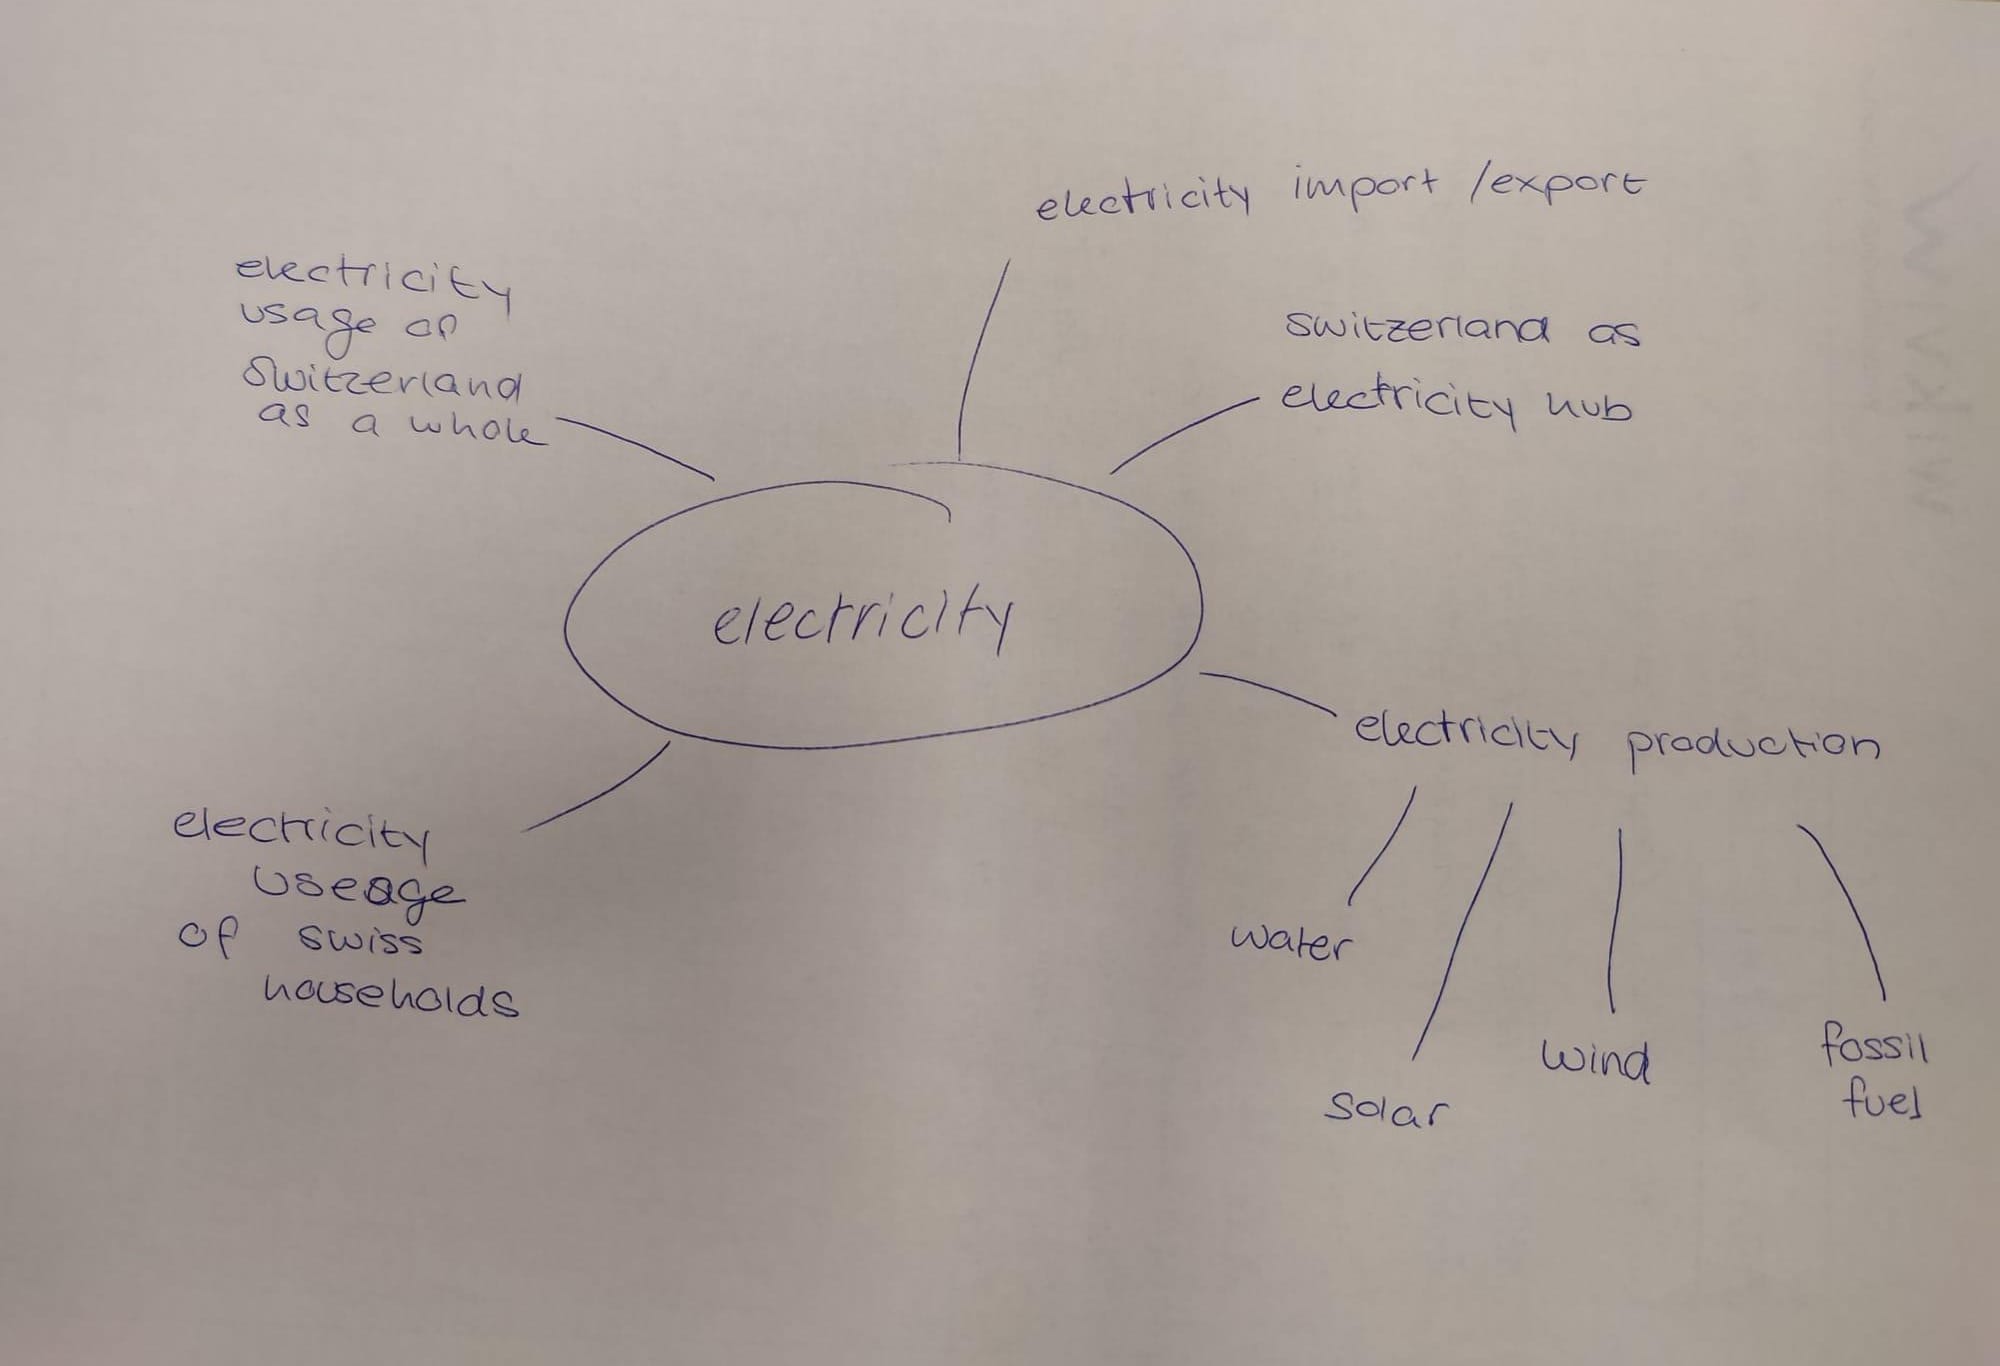 electricity import / export
electricity
usage of
Switzerland
as a whole
switzerland as
electricity hub
electricity
electricity production
electricity
useage
of swiss
households
water
solar
wind
fossil
fuel